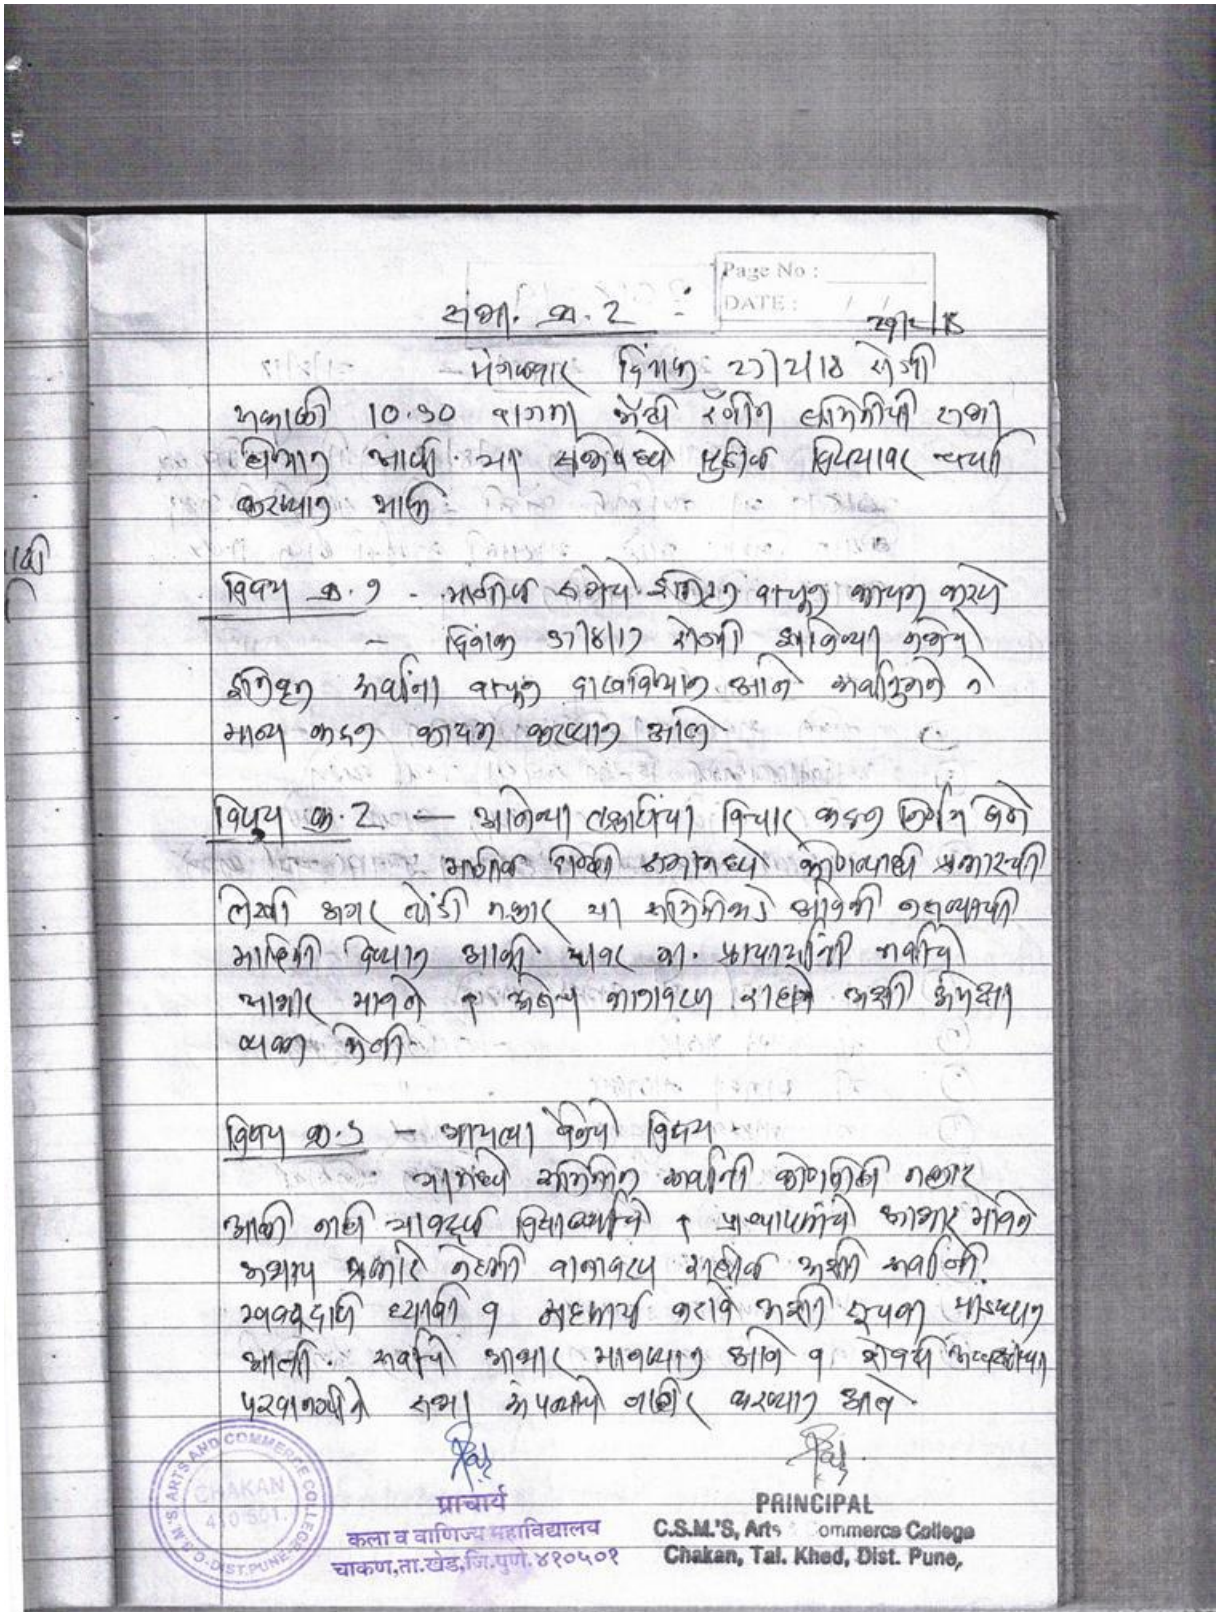 Page No :
DATE : / /
सभा. क्र. 2
मंगळवार दिनांक 27/2/18 रोजी
सकाळी 10.30 वाजता अँटी रॅगींग समितीची सभा
घेण्यात आली. या सभेमध्ये पुढील विषयावर चर्चा
करण्यात आली
विषय क्र. 1 - मागील सभेचे इतिवृत्त वाचून कायम करणे
- दिनांक रोजी झालेल्या सभेचे
इतिवृत्त सर्वांना वाचून दाखविण्यात आले सर्वानुमते ते
मान्य करुन कायम करण्यात आले
विषय क्र. 2 - आलेल्या तक्रारींचा विचार करुन निर्णय घेणे
मागील सभेमध्ये कोणत्याही प्रकारची
लेखी अगर तोंडी तक्रार या समितीकडे आलेली नसल्याची
माहिती देण्यात आली. यावर मा. प्राचार्यांनी सर्वांचे
आभार मानले व असेच वातावरण राहावे अशी अपेक्षा
व्यक्त केली.
विषय क्र. 3 - आयत्या वेळेचे विषय
यामध्ये समितीत सर्वांनी कोणतीही तक्रार
आली नाही याबद्दल विद्यार्थ्यांचे व प्राध्यापकांचे आभार मानले
अशाच प्रकारे नेहमी वातावरण राहील अशी सर्वांनी
खबरदारी घ्यावी व सहकार्य करावे अशी सूचना मांडण्यात
आली. सर्वांचे आभार मानण्यात आले व शेवटी अध्यक्षांच्या
परवानगीने सभा संपल्याचे जाहीर करण्यात आले.
C.S.M.'S ARTS AND COMMERCE COLLEGE
CHAKAN
410 501.
DIST.PUNE
प्राचार्य
कला व वाणिज्य महाविद्यालय
चाकण,ता.खेड,जि.पुणे.४१०५०१
PRINCIPAL
C.S.M.'S, Arts Commerce College
Chakan, Tal. Khed, Dist. Pune,